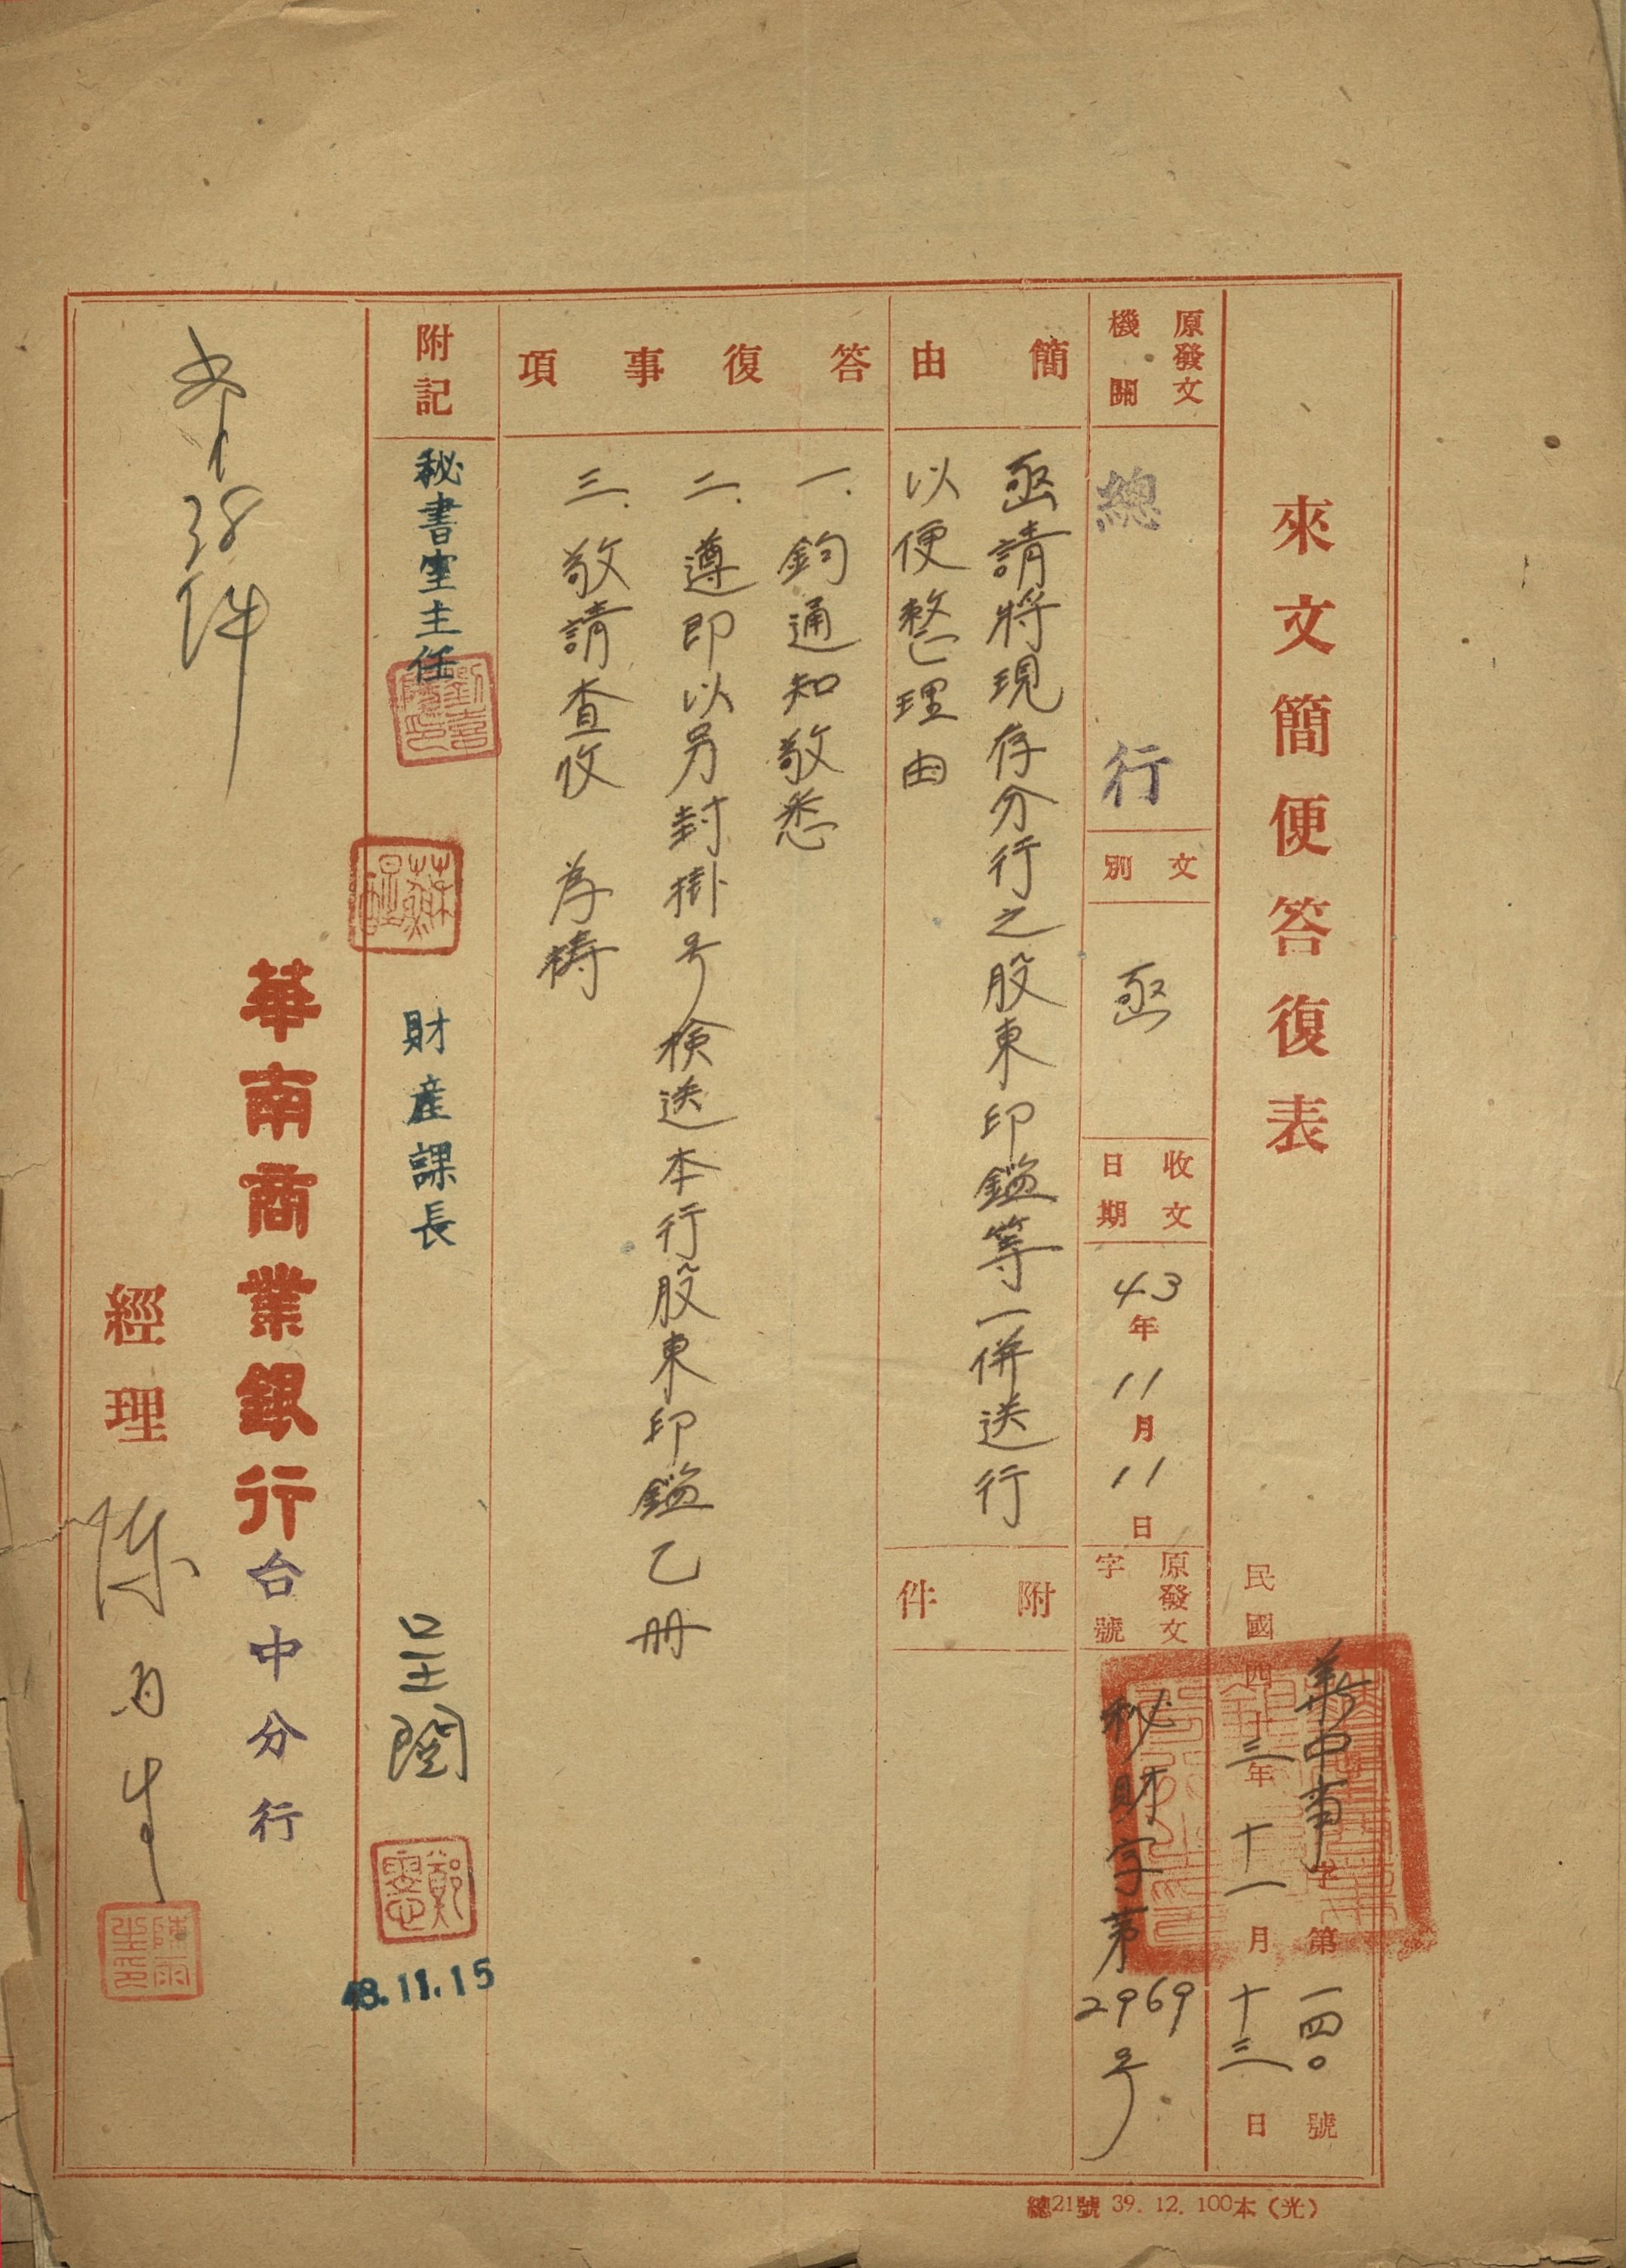 來文簡便答復表
華中事字第一四〇號
民國四十三年十一月十三日
原發文機關
總行
文別
函
收文日期
43年11月11日
原發文字號
秘財字第2969号
簡由
函請將現存分行之股東印鑑等一併送行
以便整理由
附件
答復事項
一.鈞通知敬悉
二.遵即以另封掛号檢送本行股東印鑑乙册
三.敬請查收 為禱
附記
秘書室主任
財產課長
呈閱
43.11.15
38件
華南商業銀行台中分行
經理
陳雨生印
總21號 39. 12. 100本(光)